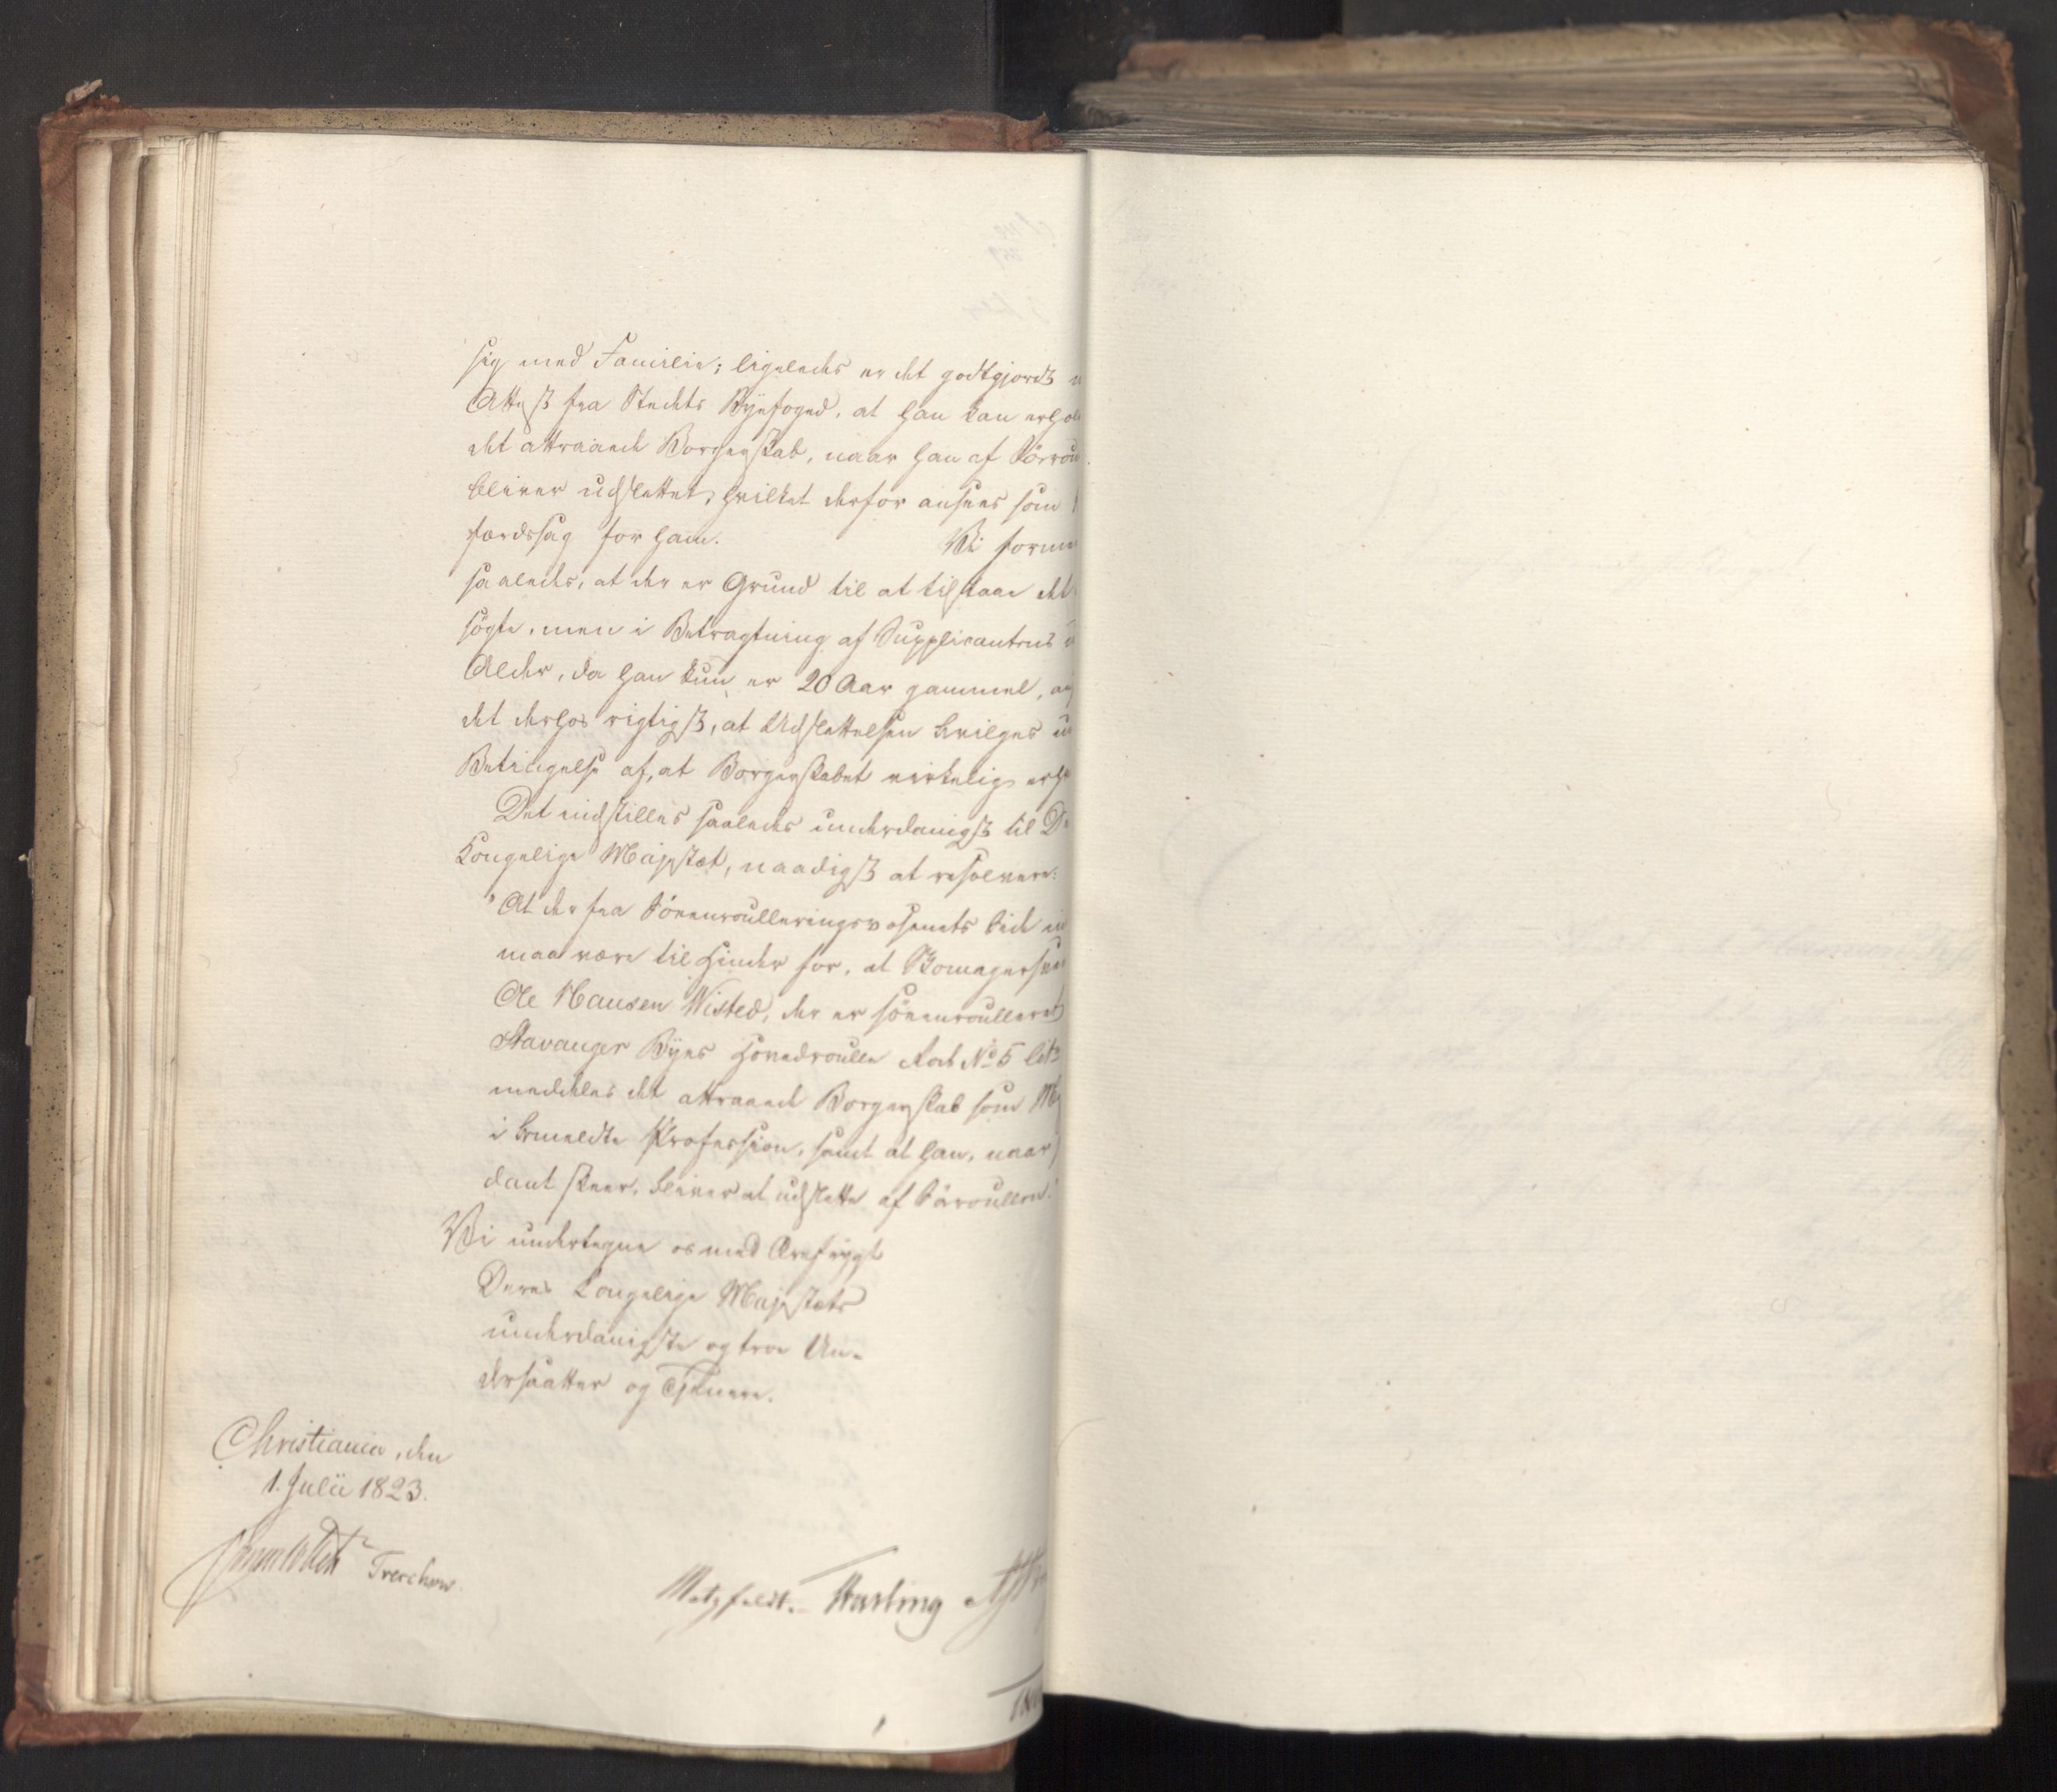 sig med Familie; ligeledes er det godtgjordt
Attest fra Stedets Byefoged, at han kan erhol
det attraaede Borgerskab, naar han af Sörrou
bliver udslettet, hvilket derfor ansees som
færdssag for ham. Vi forme
saaledes, at der er Grund til at tilstaae det
søgte, men i Betragtning af Supplicantens
Alder, da han kun er 20 Aar gammel, an
det derhos rigtigst, at Udslettelsen bevilges
Betingelse af, at Borgerskabet virkelig erh
Det indstilles saaledes underdanigst til De
Kongelige Majestæt, naadigst at resolvere:
"At der fra Söeenroulleringsvæsenets Side
maa være til Hinder for, at Skomagersve
Ole Hansen Wisted, der er söeenroulleret
Stavanger Byes Hovedroulle Lod No 5 litr
meddeles det attraaede Borgerskab som Me
i bemeldte Profession, samt at han, naar
dant skeer, bliver at udslette af Sörroullen."
Vi undertegne os med Ærefrygt
Deres Kongelige Majestæts
underdanigste og troe Un-
dersaatter og Tjenere.
Christiania, den
1. Julii 1823.
Sommerhielm Treschow
Motzfeldt. Fasting